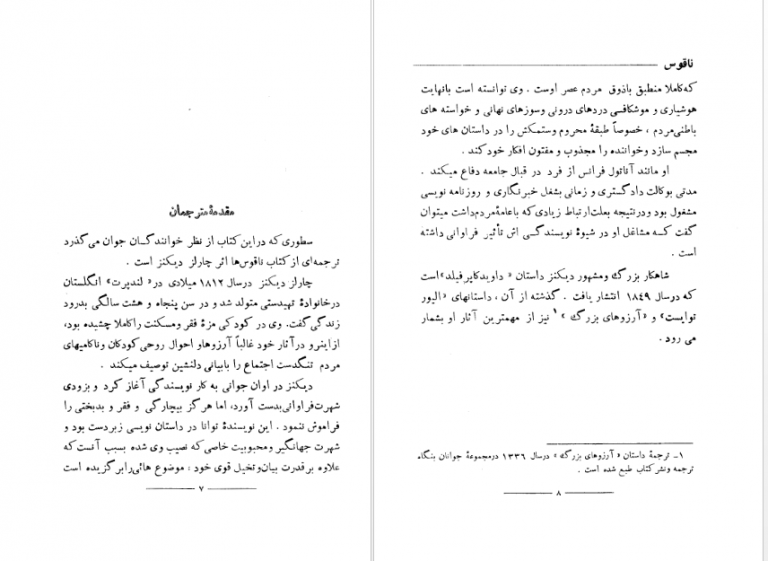 مقدمهٔ مترجمان
سطوری که در این کتاب از نظر خوانندگان جوان می‌گذرد
ترجمه‌ای از کتاب ناقوس‌ها اثر چارلز دیکنز است .
چارلز دیکنز درسال ۱۸۱۲ میلادی در «لندپرت» انگلستان
درخانوادهٔ تهیدستی متولد شد و در سن پنجاه و هشت سالگی بدرود
زندگی گفت. وی در کودکی مزهٔ فقر ومسکنت را کاملا چشیده بود،
از اینرو در آثار خود غالباً آرزوها و احوال روحی کودکان وناکامیهای
مردم تنگدست اجتماع را بابیانی دلنشین توصیف میکند .
دیکنز در اوان جوانی به کار نویسندگی آغاز کرد و بزودی
شهرت فراوانی بدست آورد، اما هرگز بیچارگی و فقر و بدبختی را
فراموش ننمود . این نویسندهٔ توانا در داستان نویسی زبردست بود و
شهرت جهانگیر ومحبوبیت خاصی که نصیب وی شده بسبب آنست که
علاوه بر قدرت بیان وتخیل قوی خود ، موضوع هائی را برگزیده است
۷
ناقوس
که کاملا منطبق باذوق مردم عصر اوست . وی توانسته است بانهایت
هوشیاری و موشکافی دردهای درونی وسوزهای نهانی و خواسته های
باطنی مردم ، خصوصاً طبقهٔ محروم وستمکش را در داستان های خود
مجسم سازد وخواننده را مجذوب و مفتون افکار خود کند .
او مانند آناتول فرانس از فرد در قبال جامعه دفاع میکند .
مدتی بوکالت دادگستری و زمانی بشغل خبرنگاری و روزنامه نویسی
مشغول بود ودرنتیجه بعلت ارتباط زیادی که باعامهٔ مردم داشت میتوان
گفت که مشاغل او در شیوهٔ نویسندگی اش تأثیر فراوانی داشته
است .
شاهکار بزرگ ومشهور دیکنز داستان «داوید کاپرفیلد» است
که درسال ۱۸۴۹ انتشار یافت . گذشته از آن ، داستانهای «الیور
توایست» و «آرزوهای بزرگ»۱ نیز از مهمترین آثار او بشمار
می رود .
۱ـ ترجمهٔ داستان «آرزوهای بزرگ» درسال ۱۳۳۶ درمجموعهٔ جوانان بنگاه
ترجمه ونشر کتاب طبع شده است .
۸